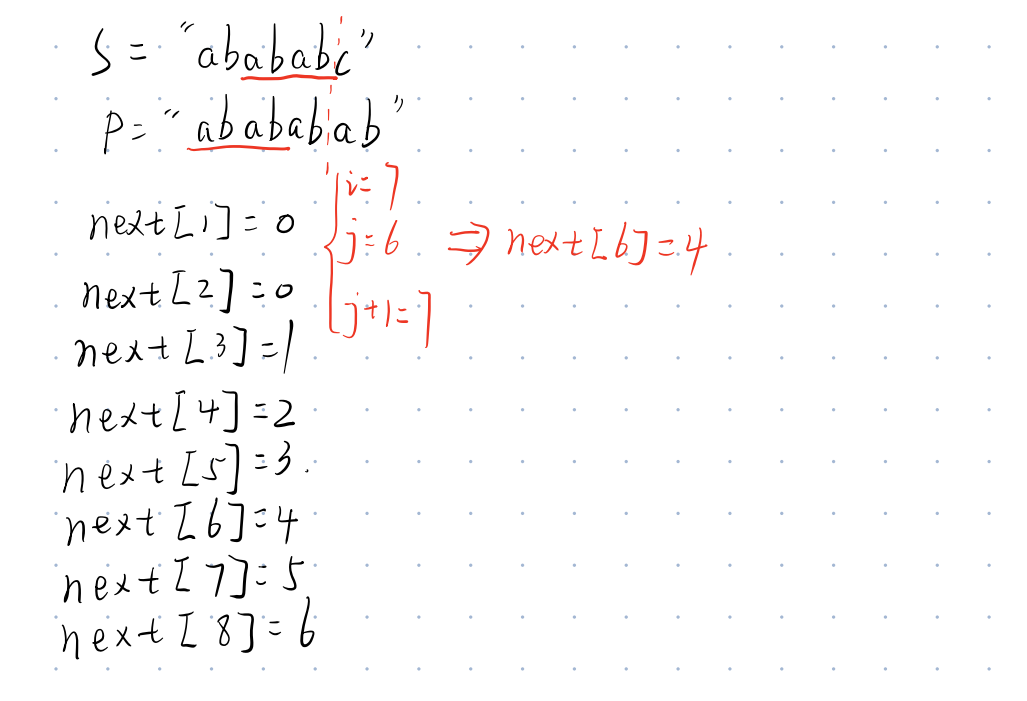 S = "abababc"
P = "abababab"
next[1] = 0
next[2] = 0
next[3] = 1
next[4] = 2
next[5] = 3.
next[6] = 4
next[7] = 5
next[8] = 6
{ i = 7
j = 6 ⇒ next[6] = 4
j+1 = 7